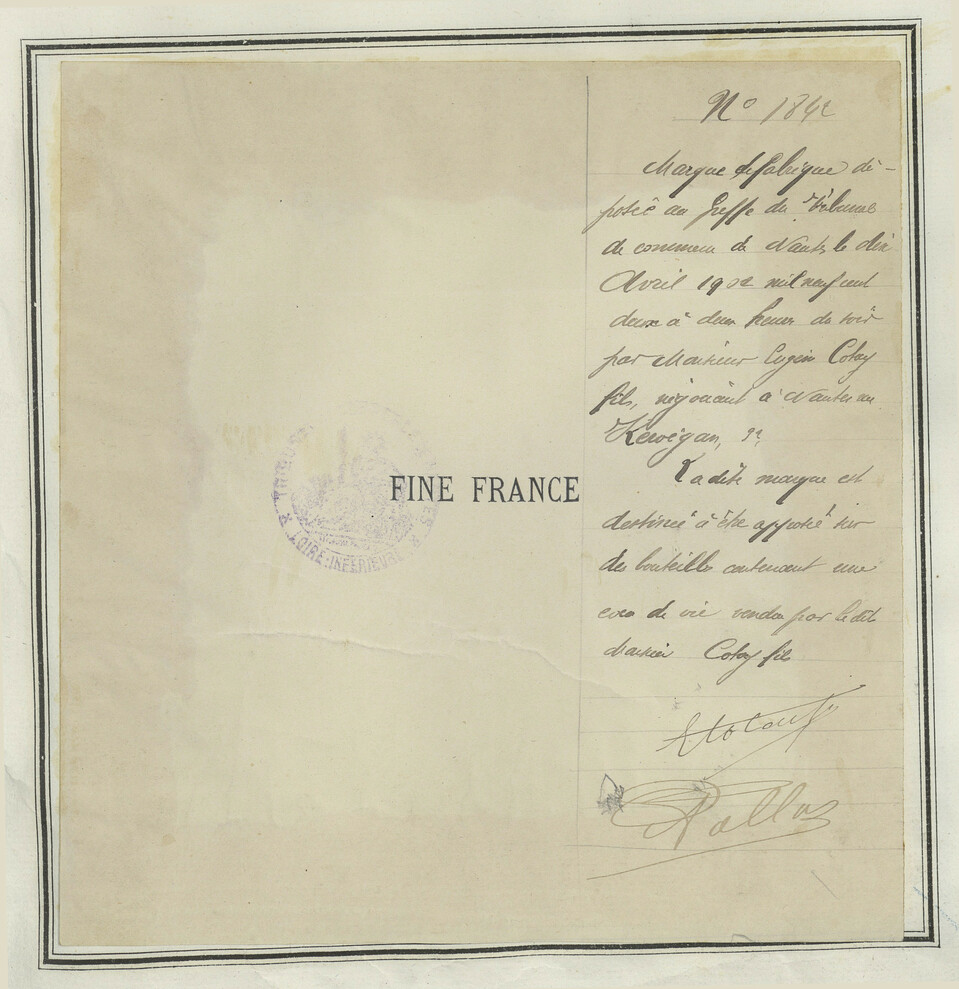 FINE FRANCE
LOIRE-INFERIEURE
N° 1842
Marque de fabrique dé-
posée au Greffe du Tribunal
de commerce de Nantes le dix
Avril 1902 mil neuf cent
deux à deux heures du soir
par Monsieur Eugène
fils, négociant à Nantes
Kervégan, 9
Ladite marque est
destinée à être apposée sur
des bouteilles contenant une
eau de vie vendue par ledit
Monsieur fils